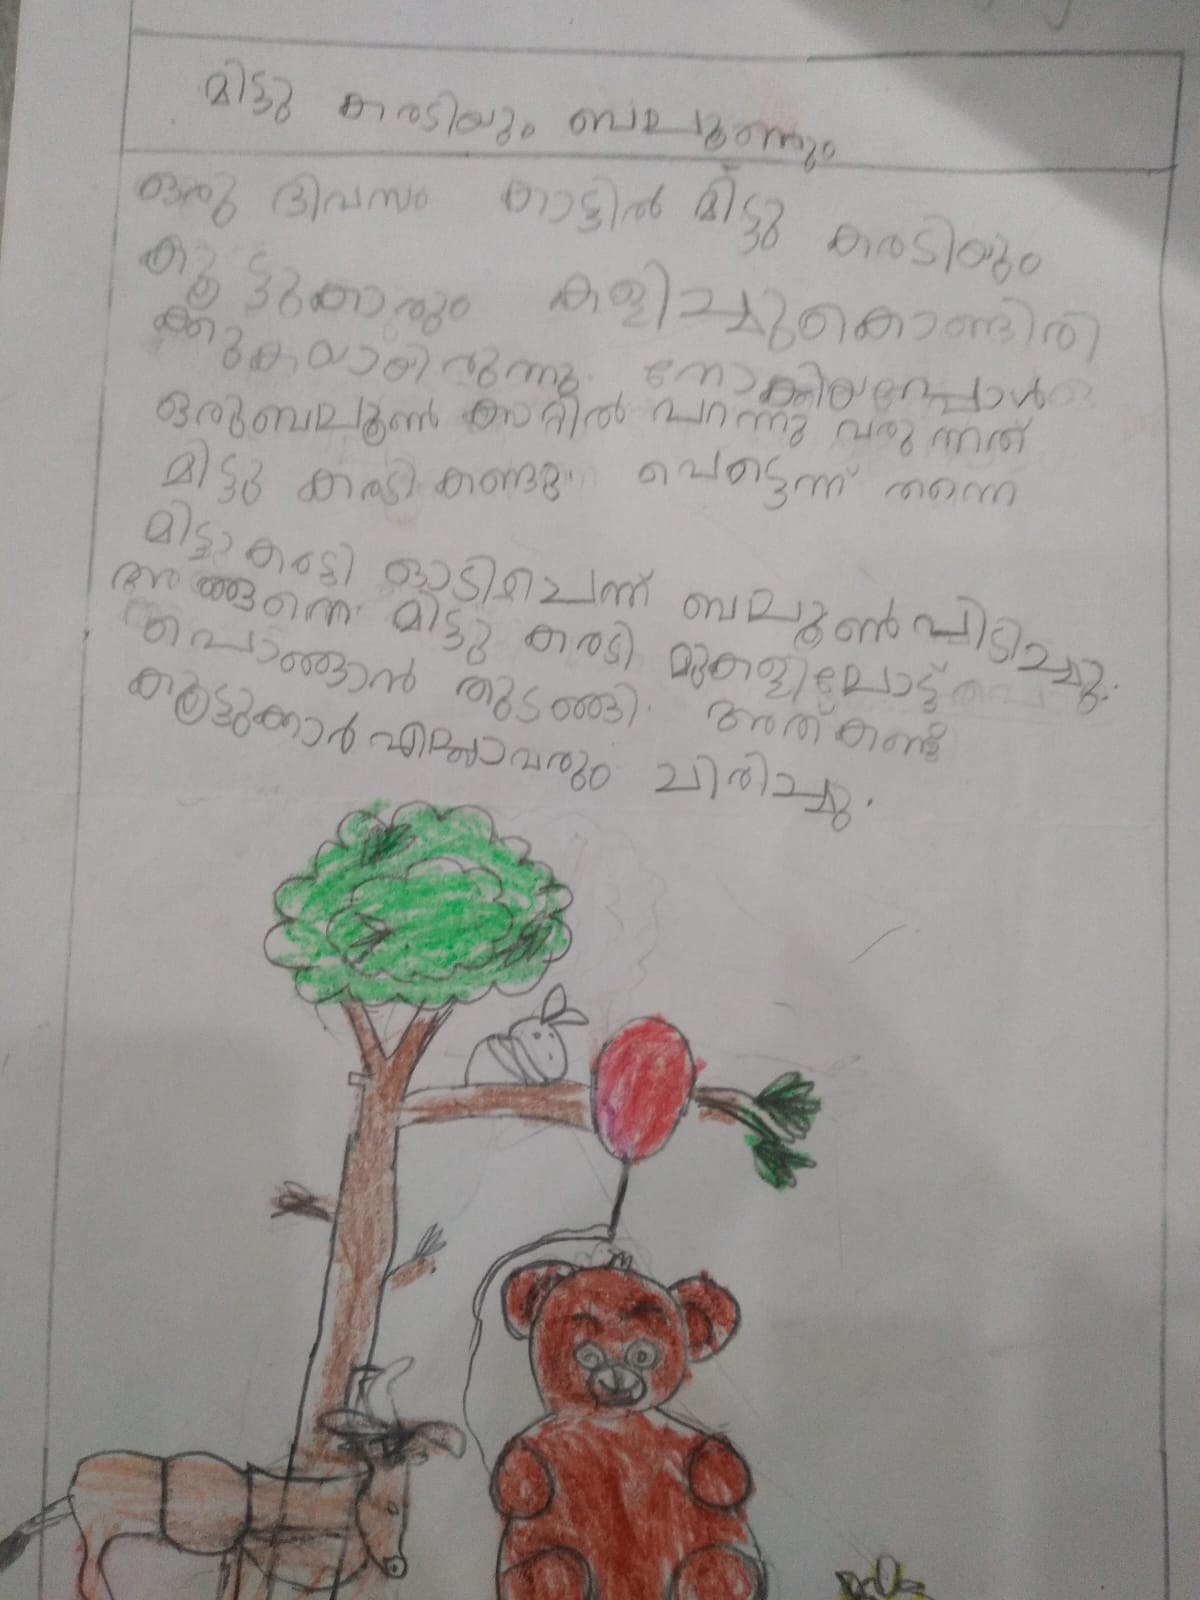 മിട്ടു കരടിയും ബലൂണും
ഒരു ദിവസം കാട്ടിൽ മിട്ടു കരടിയും
കൂട്ടുകാരും കളിച്ചുകൊണ്ടിരി
ക്കുകയായിരുന്നു. നോക്കിയപ്പോൾ
ഒരുബലൂൺ കാറ്റിൽ പറന്നു വരുന്നത്
മിട്ടു കരടി കണ്ടു. പെട്ടെന്ന് തന്നെ
മിട്ടു കരടി ഓടിചെന്ന് ബലൂൺ പിടിച്ചു.
അങ്ങനെ മിട്ടു കരടി മുകളിലോട്ട്
പൊങ്ങാൻ തുടങ്ങി. അത് കണ്ട്
കൂട്ടുകാർ എല്ലാവരും ചിരിച്ചു.